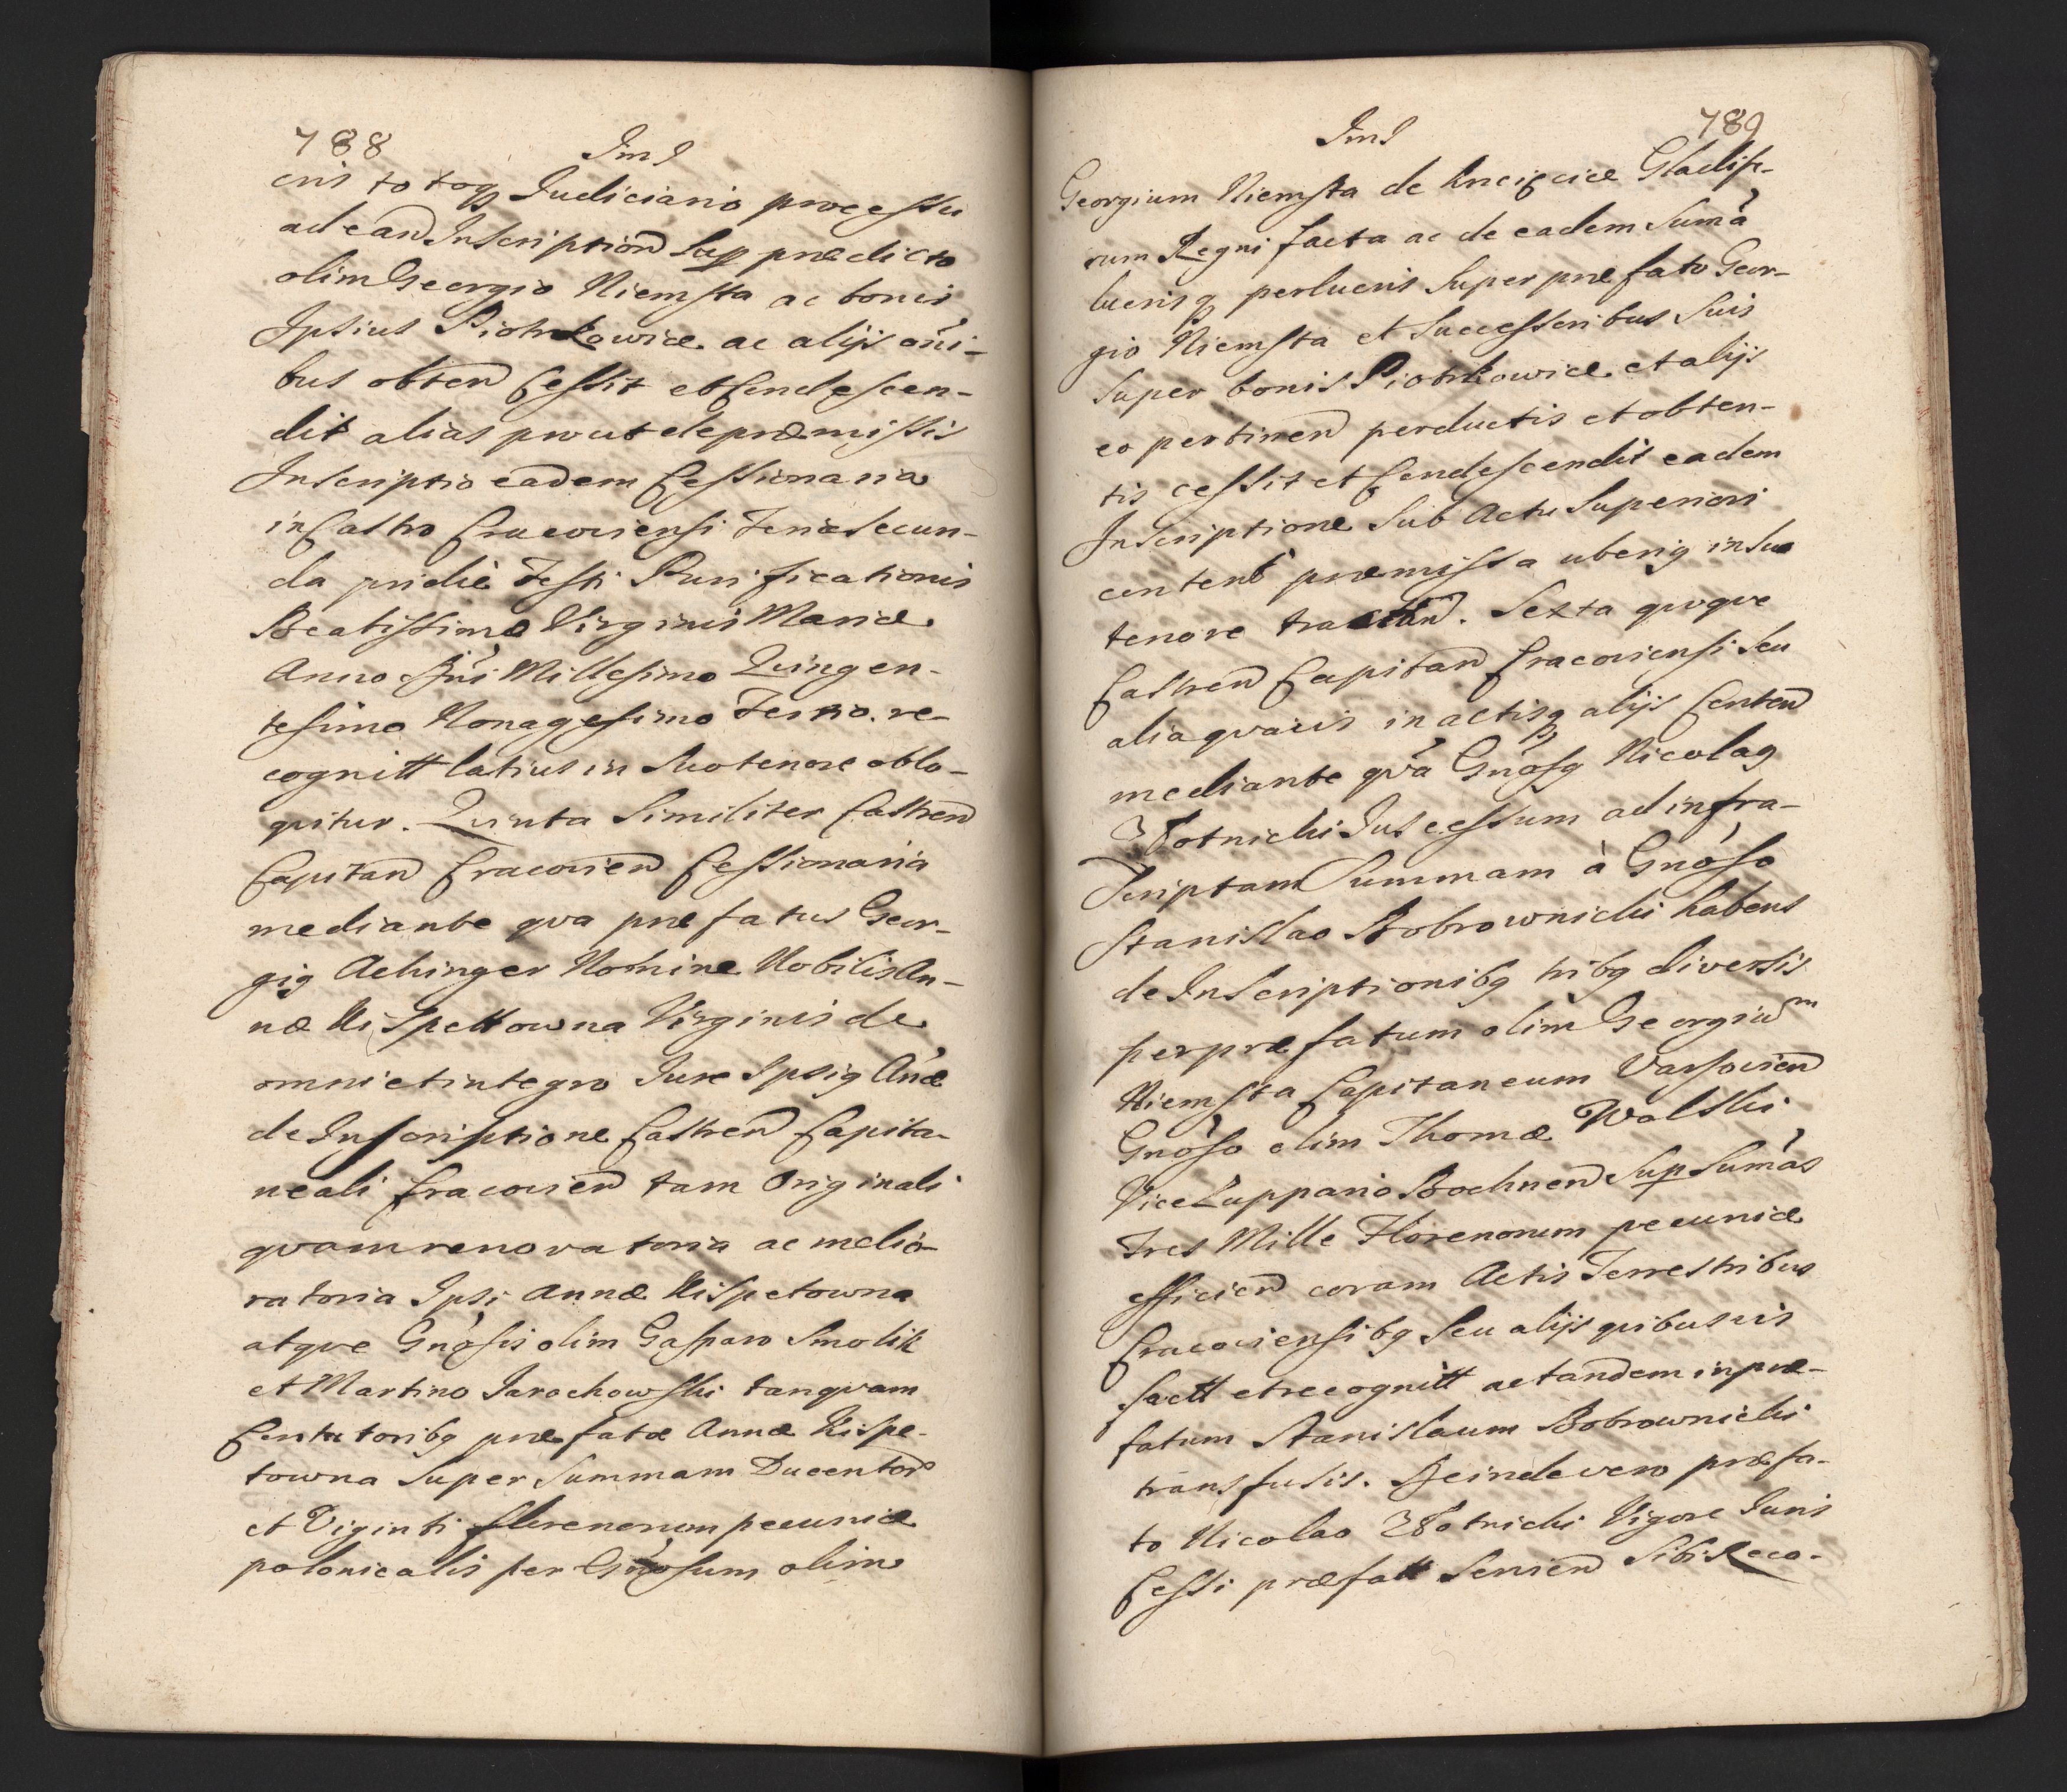 788
Jms
cris totoq Judiciario processu
ad eand Inscription sup prædicto
olim Georgio Niemsta ac bonis
Ipsius Piotrkowice ac alijs oni-
bus obten Cessit et Condescen-
dit alias prout de præmissis
Inscriptio eadem Cessionaria
in Castro Cracoviensi Feria Secun-
da pridie Festi Purificationis
Beatissimæ Virginis Mariæ
Anno Dni Millesimo Quingen-
tesimo Nonagesimo Tertio. re-
cognitt latius in suo tenore oblo-
quitur. Quinta Similiter Castren
Capitan Cracovien Cessionaria
mediante qva præfatus Geor-
gig Achinger Nomine Nobilis An-
næ Kispettowna Virginis de
omni et integro Jure Ipsig Anæ
de Inscriptione Castren Capita-
neali Cracovien tam Originali
qvam renovatoria ac melio-
ratoria Ipsi Annæ Kispetowna
atqve Gnosis olim Gasparo Smolik
et Martino Jarochowski tanqvam
Cortutoribg præfatæ Annæ Kispe-
towna super Summam Ducentor
et Viginti florenorum pecuniæ
polonicalis per Gnosum olim
789
Jms
Georgium Niemsta de Krcięcice Gladife-
rum Regni facta ac de eadem Suma
lucrisq perlucris super præfato Geor-
gio Niemsta et Successoribus Suis
super bonis Piotrkowice et alijs
eo pertinen perductis et obten-
tis cessit et Condescendit eadem
Inscriptione sub Actu Superiori
content præmissa uberig in suo
tenore tractan. Sexta qvoqve
Castren Capitan Cracoviensi seu
alia qvavis in actisq alijs Conten
mediante qva Gnosg Nicolag
Złotnicki Jus cessum ad infra-
scriptam Summam à Gnoso
Stanislao Bobrownicki habens
de Inscriptionibg tribg diversis
per præfatum olim Georgium
Niemsta Capitaneum Varsovien
Gnoso olim Thomæ Walski
Vice Zuppario Bochnen Sup Sumas
Tres Mille Florenorum pecuniæ
efficien coram Actis Terrestribus
Cracoviensibg seu alijs qvibusvis
factt et recognitt ac tandem in præ-
fatum Stanislaum Bobrownicki
transfusis. Deinde vero præfa-
to Nicolao Złotnicki Vigore Juris
Cessi præfatt Servien Sibi Reco-